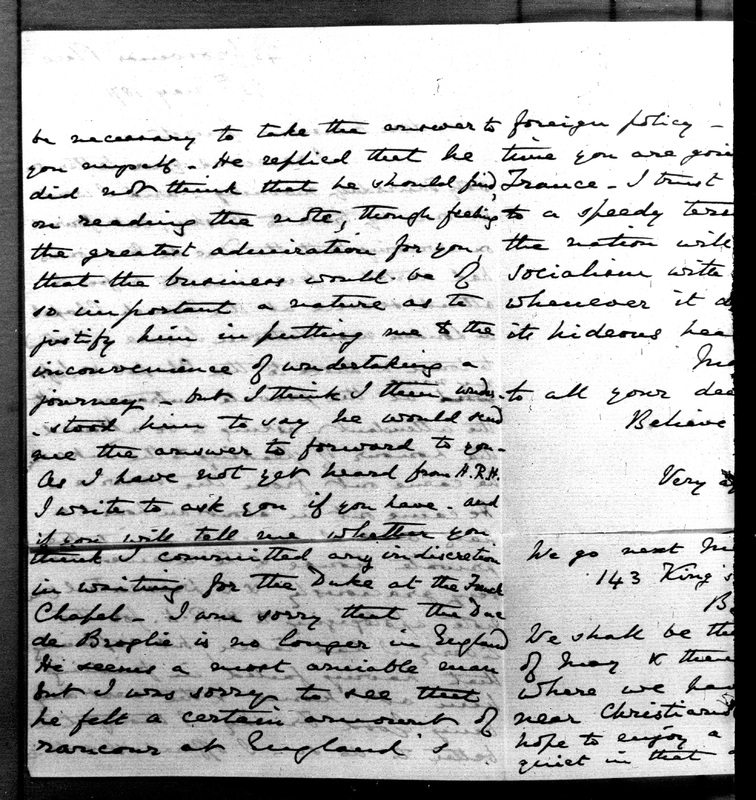 be necessary to take the answer to
you myself - He replied that he
did not think that he should find,
on reading the note, though feeling
the greatest admiration for you,
that the business would be of
so important a nature as to
justify him in putting me to the
inconvenience of undertaking a
journey - but I think I then under-
-stood him to say he would send
me the answer to forward to you -
As I have not yet heard from H.R.H.
I write to ask you if you have - and
if you will tell me whether you
think I committed any indiscretion
in waiting for the Duke at the French
Chapel - I am sorry that the Duc
de Broglie is no longer in England
He seems a most amiable man
but I was sorry to see that
he felt a certain amount of
rancour at England's
foreign policy -
time you are goin
France - I trust
to a speedy ter
the nation will
socialism with
whenever it
its hideous hea
to all your dea
Believe
Very
We go next
143 King's
We shall be the
of May & then
where we hav
near Christian
hope to enjoy a
quiet in that